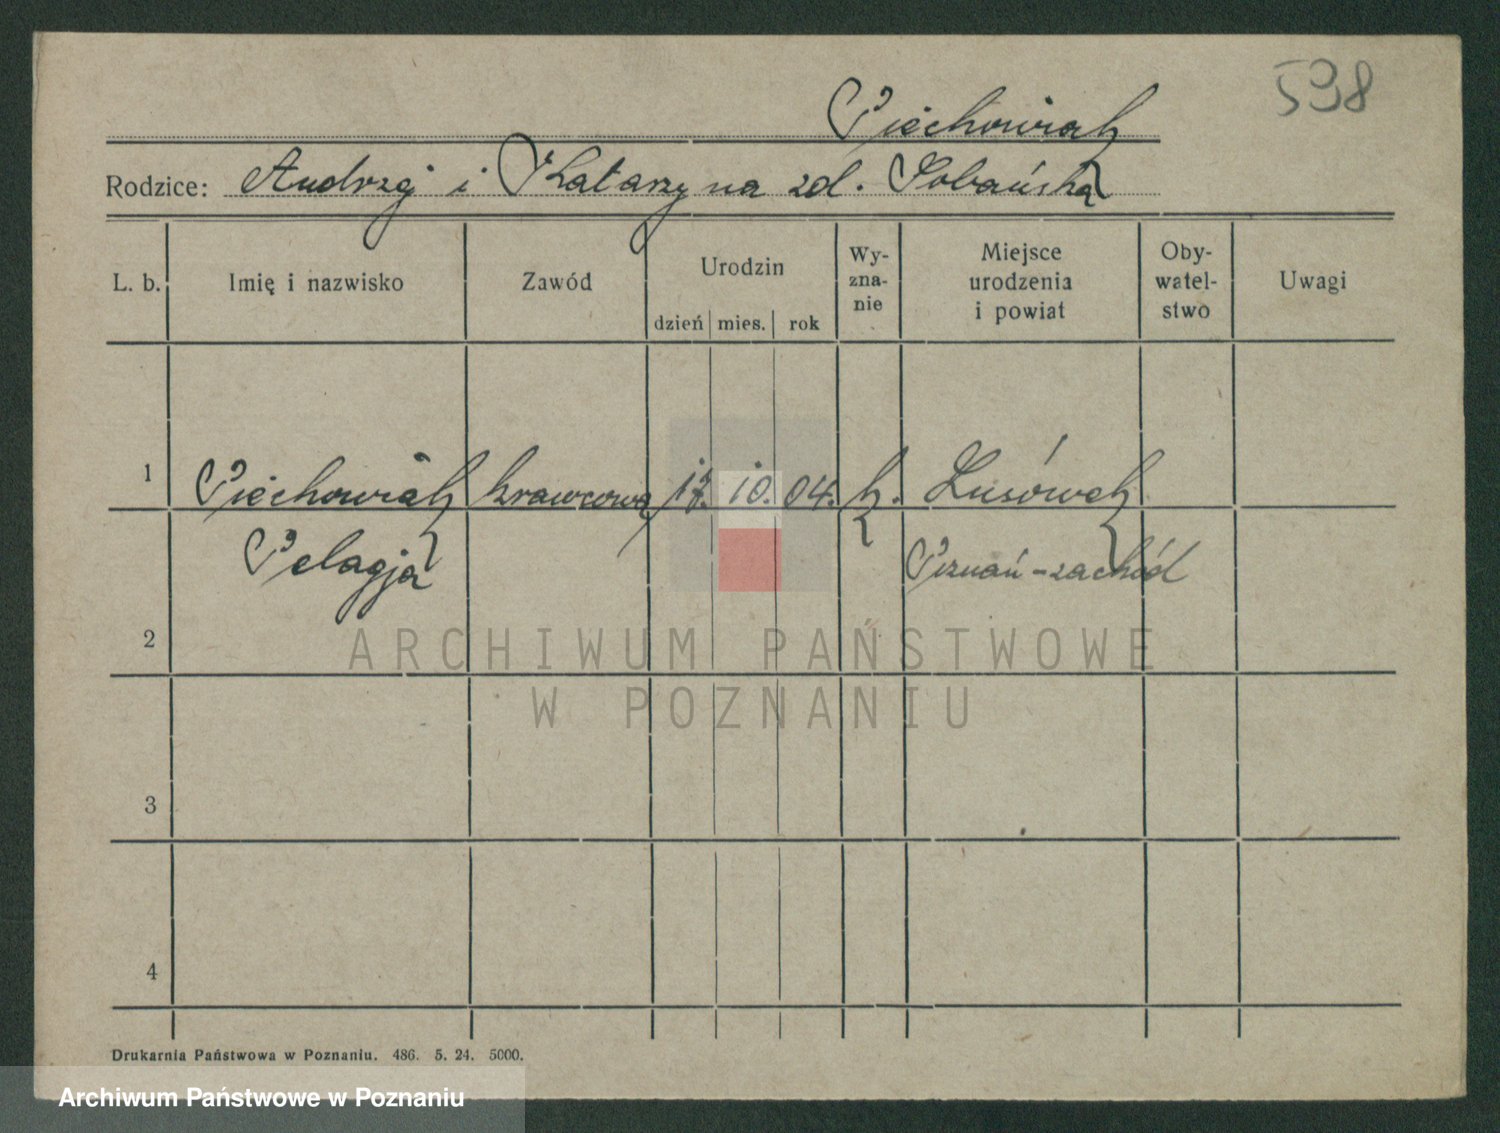 598
Piechowiak
Rodzice: Andrzej i Katarzyna zd. Sobańska
L. b. Imię i nazwisko Zawód Urodzin dzień mies. rok Wy-zna-nie Miejsce urodzenia i powiat Oby-watel-stwo Uwagi
1 Piechowiak krawcowa 17. 10. 04. k. Lusówek
Pelagja Poznań-zachód
2
3
4
ARCHIWUM PAŃSTWOWE
W POZNANIU
Drukarnia Państwowa w Poznaniu. 486. 5. 24. 5000.
Archiwum Państwowe w Poznaniu